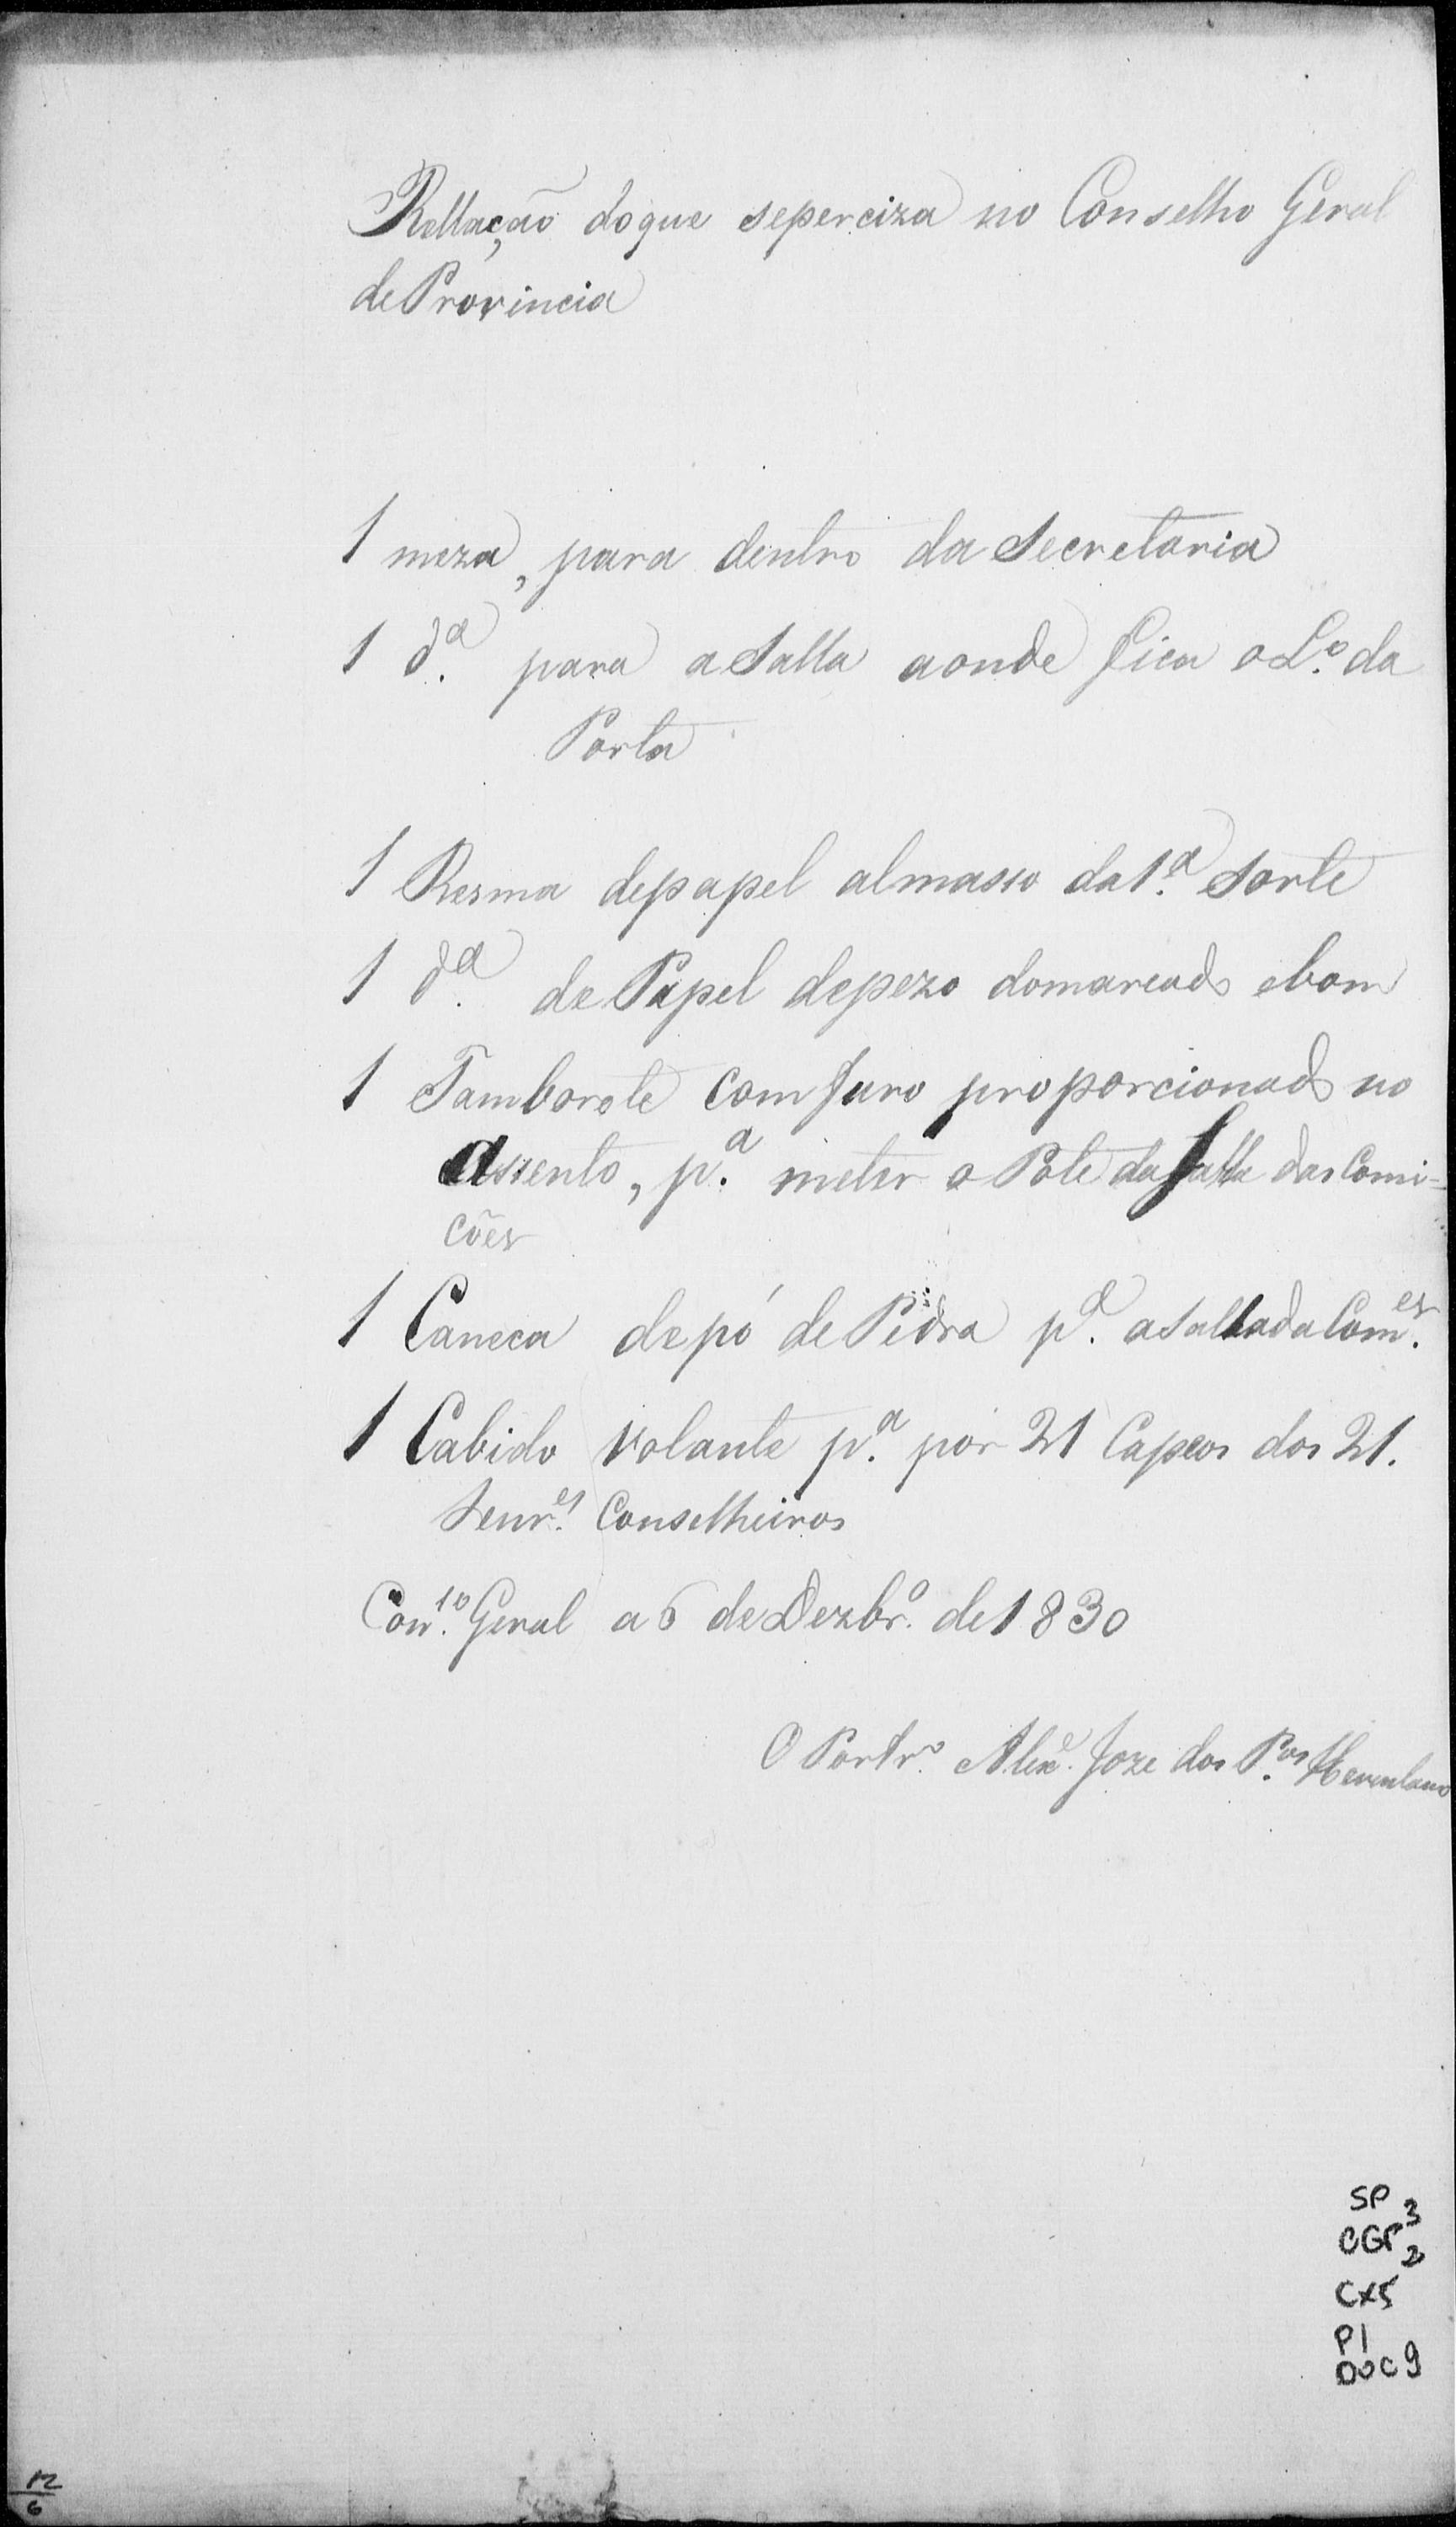 Rellação doque seperciza no Conselho Geral
de Provincia
1 meza, para dentro da Secretaria
1 d.ª para a Salla aonde fica o L.º da
Porta
1 Resma depapel almasso da 1.ª Sorte
1 d.ª de Papel depezo domarcado ebom
1 Tamborete com furo proporcionado no
assento, p.ª meter o Pote da Salla das Comi-
cões
1 Caneca depó de Pedra p.ª a Salla da Com.es
1 Cabido volante p.ª por 21 Capeos dos 21.
Senr.es Conselheiros
Con.lo Geral a 6 de Dezbr.º de 1830
O Portr.º Alex.e Joze dos P.os Herculano
SP 3
CGP 2
CX5
P1
DOC 9
12
6